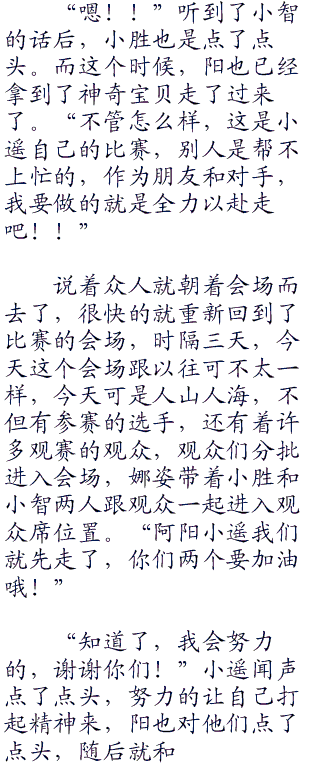 “嗯！！”听到了小智
的话后，小胜也是点了点
头。而这个时候，阳也已经
拿到了神奇宝贝走了过来
了。“不管怎么样，这是小
遥自己的比赛，别人是帮不
上忙的，作为朋友和对手，
我要做的就是全力以赴走
吧！！”
说着众人就朝着会场而
去了，很快的就重新回到了
比赛的会场，时隔三天，今
天这个会场跟以往可不太一
样，今天可是人山人海，不
但有参赛的选手，还有着许
多观赛的观众，观众们分批
进入会场，娜姿带着小胜和
小智两人跟观众一起进入观
众席位置。“阿阳小遥我们
就先走了，你们两个要加油
哦！”
“知道了，我会努力
的，谢谢你们！”小遥闻声
点了点头，努力的让自己打
起精神来，阳也对他们点了
点头，随后就和